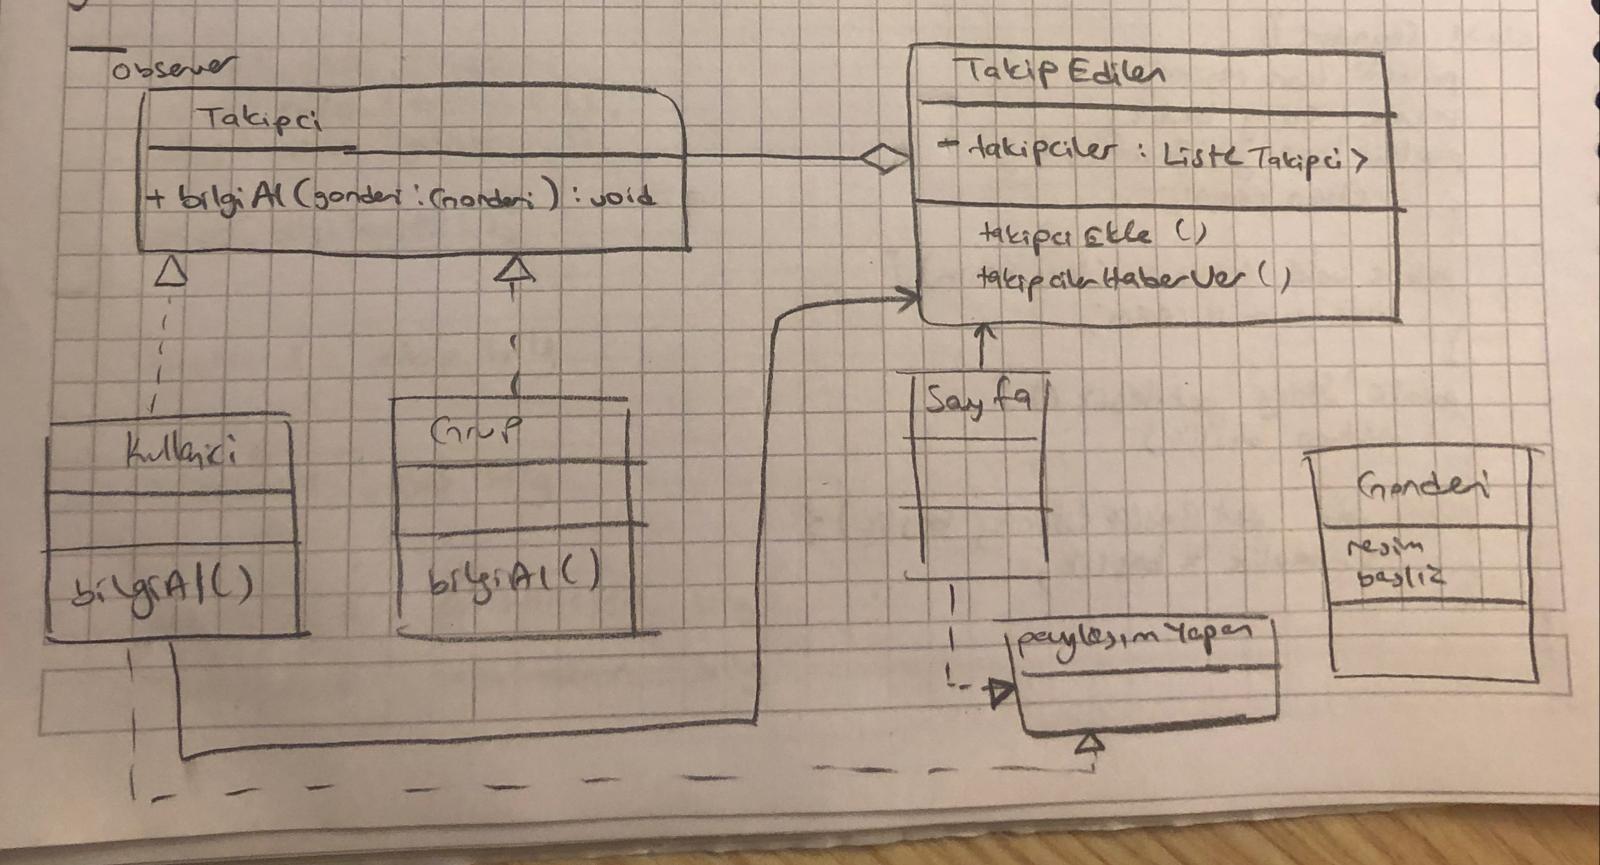 Observer
Takipci
+ bilgiAl(gonderi:Gonderi):void
Takip Edilen
- takipciler : List<Takipci>
takipciEkle ()
takipcilerHaberVer ()
Kullanici
bilgiAl()
Grup
bilgiAl()
Sayfa
Gonderi
resim
baslik
paylasim Yapan